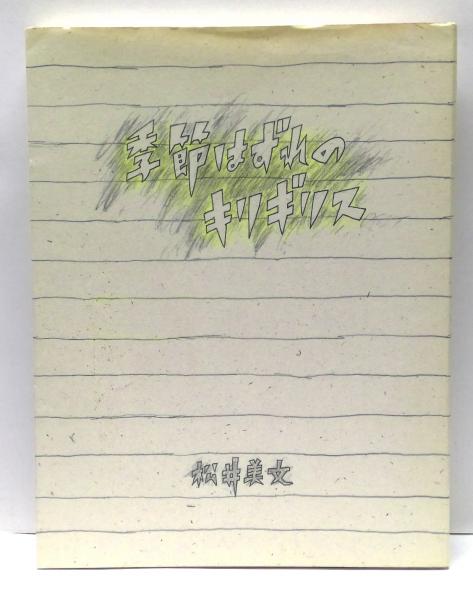 季節はずれの
キリギリス
松井美文